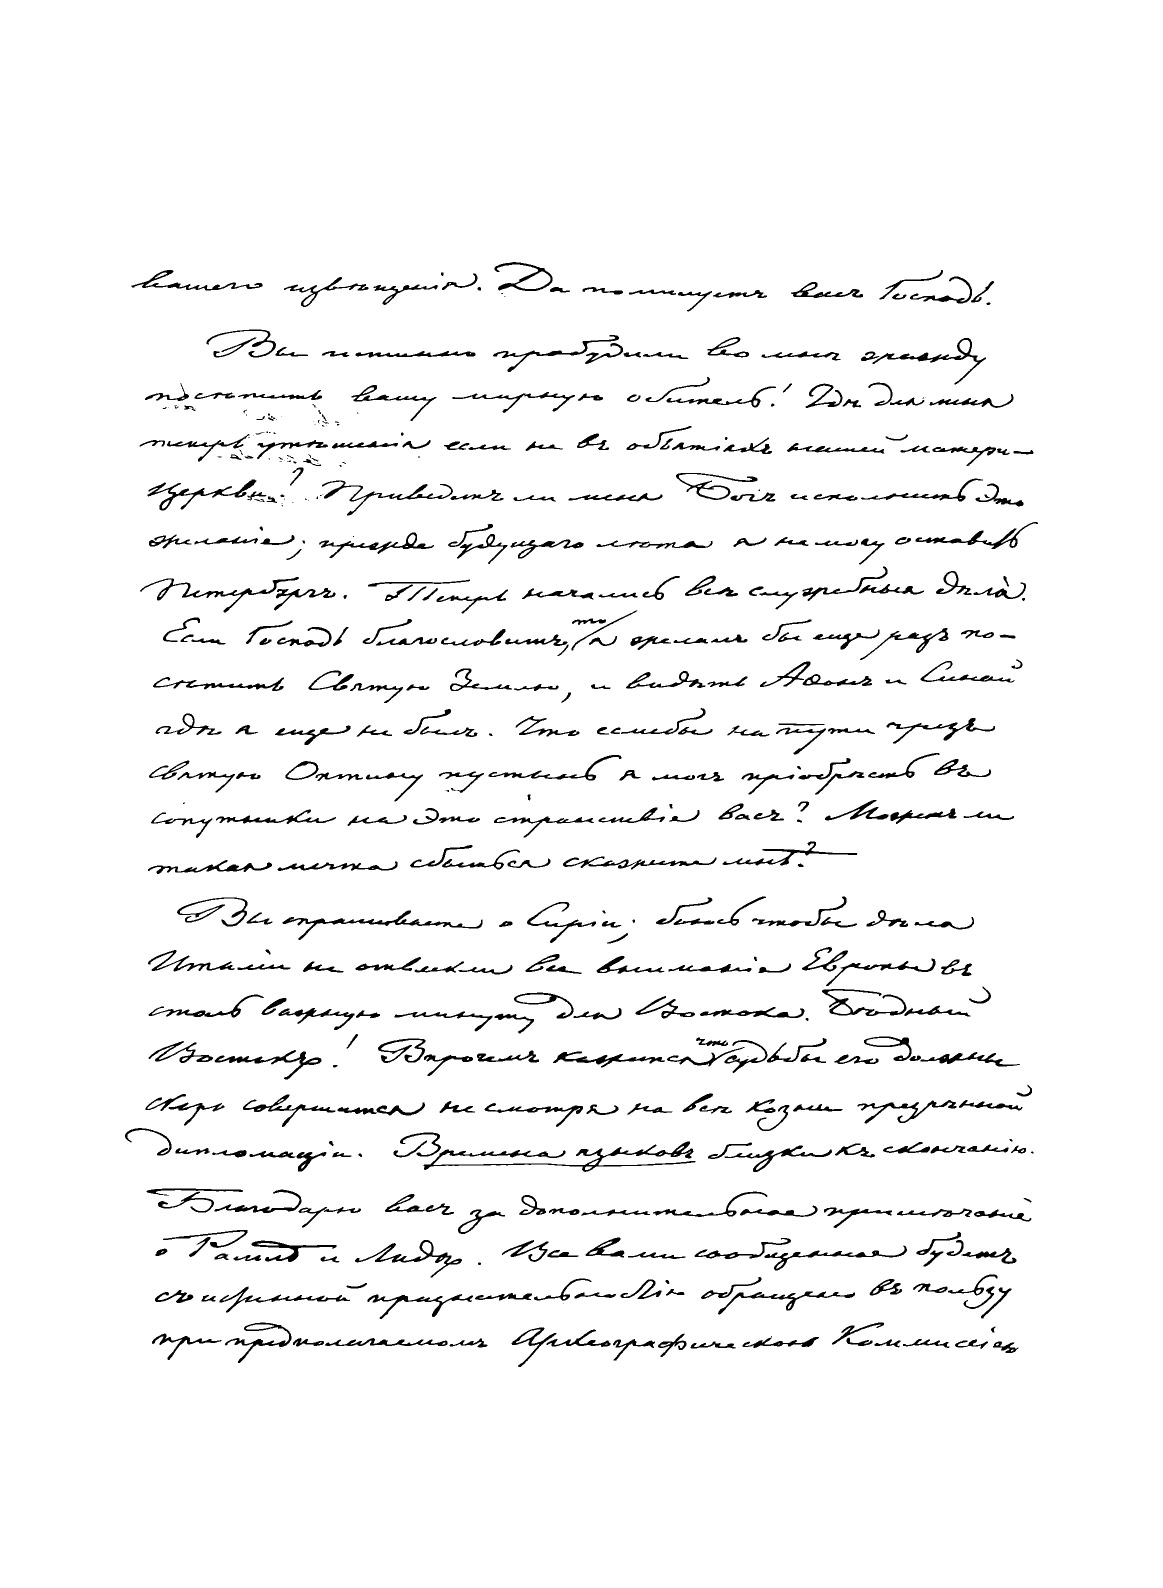 вашего извѣщенія. Да помилуетъ васъ Господь.
Вы истинно пробудили во мнѣ жажду
посѣтить вашу мирную обитель! Гдѣ для меня
теперь утѣшенія если не въ объятіяхъ нашей матери-
Церкви? Приведетъ ли меня Богъ исполнить это
желаніе; прежде будущаго лѣта я не могу оставить
Петербургъ. Теперь начались всѣ служебныя дѣла.
Если Господь благословитъ, то я желалъ бы еще разъ по-
сѣтить Святую Землю, и видѣть Аѳонъ и Синай
гдѣ я еще не былъ. Что еслибы на пути чрезъ
святую Оптину пустынь я могъ пріобрѣсть въ
сопутники на это странствіе васъ? Можетъ ли
такая мечта сбыться скажите мнѣ?
Вы спрашиваете о Сиріи; боюсь чтобы дѣла
Италіи не отвлекли все вниманіе Европы въ
столь важную минуту для Востока. Бѣдный
Востокъ! Впрочемъ кажется что судьбы его должны
скоро совершится не смотря на всѣ козни презрѣнной
дипломаціи. Времена языковъ близки къ скончанію.
Благодарю васъ за дополнительное примѣчаніе
о Рамлѣ и Лиддѣ. Все вами сообщенное будетъ
съ истинной признательностію обращено въ пользу
при предполагаемомъ Археографическою Коммисіею